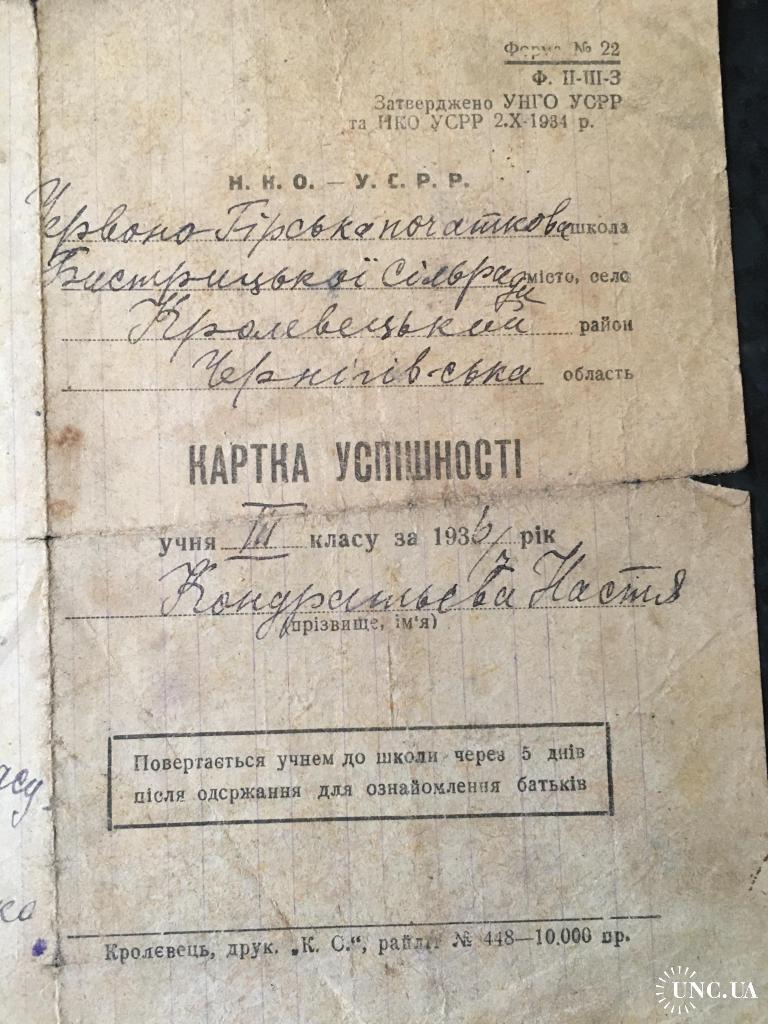 Форма № 22
Ф. II-III-3
Затверджено УНГО УСРР
та НКО УСРР 2.X-1934 р.
Н. К. О. — У. С. Р. Р.
Червоно-Гірська початкова школа
Бистрицької сільради місто, село
Кролевецький район
Чернігівська область
КАРТКА УСПІШНОСТІ
учня III класу за 1936/7 рік
Кондратьєва Настя
(прізвище, ім'я)
Повертається учнем до школи через 5 днів
після одержання для ознайомлення батьків
Кролєвець, друк. „К. С.“, райліт № 448—10.000 пр.
UNC.UA